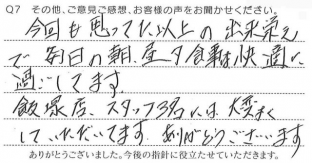 Q7 その他、ご意見ご感想、お客様の声をお聞かせください。
今回も思ってた以上の出来栄え
で毎日の朝、昼、夕食事は快適に
過ごしてます。
飯塚店、スタッフ3名には大変よく
していただいてます。ありがとうございます
ありがとうございました。今後の指針に役立たせていただきます。